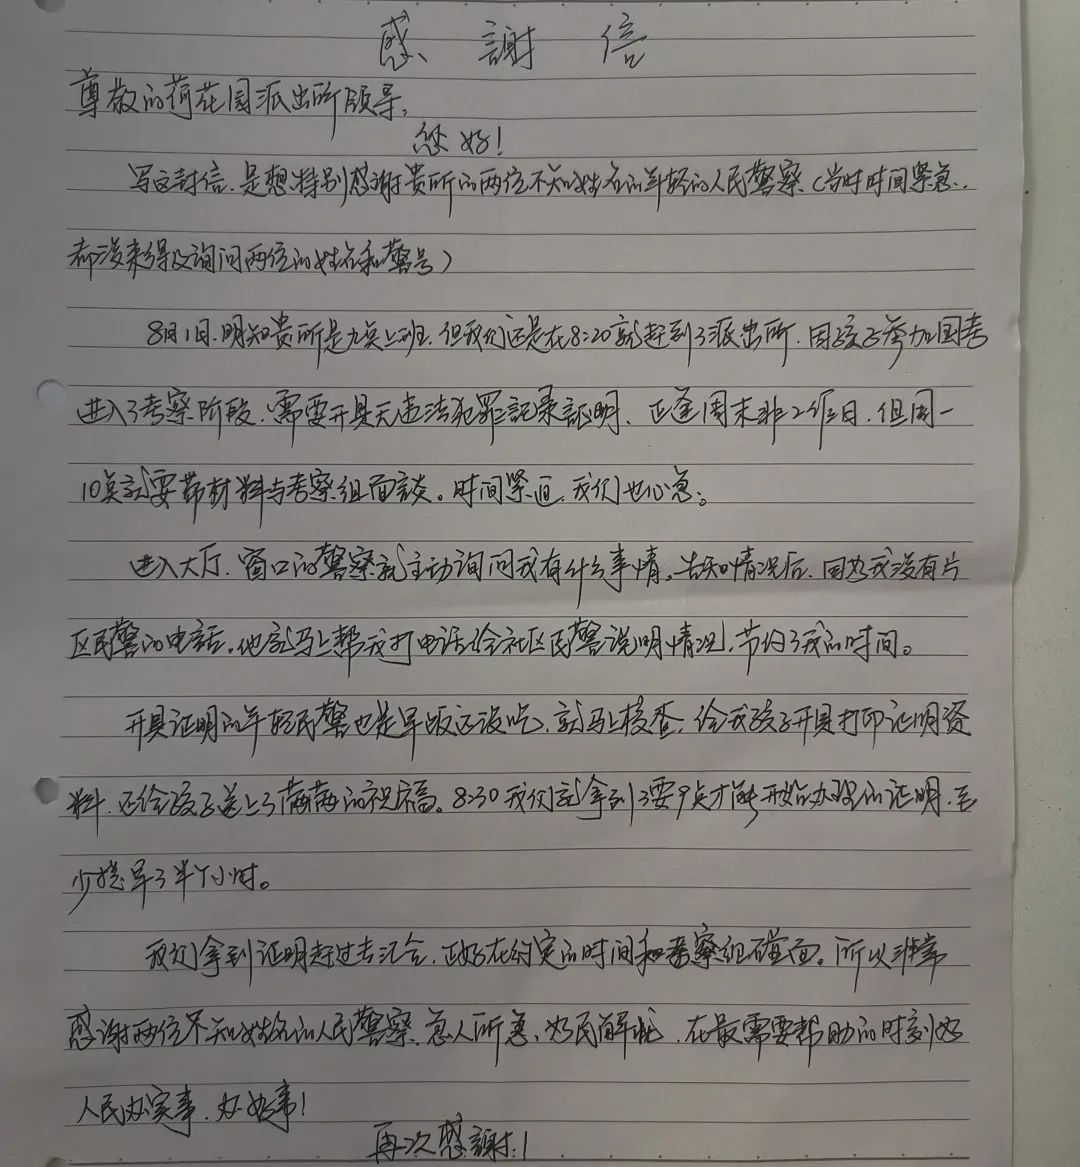 感謝信
尊敬的荷花园派出所领导：
您好！
写这封信，是想特别感谢贵所的两位不知姓名的年轻的人民警察（当时时间紧急，
都没来得及询问两位的姓名和警号）
8月1日，明知贵所是九点上班，但我们还是在8:20就赶到了派出所，因孩子参加国考
进入了考察阶段，需要开具无违法犯罪記录証明，正逢周末非工作日，但周一
10点就要带材料与考察组面談。时间紧迫，我们也心急。
进入大厅，窗口的警察就主动询问我有什么事情。告知情况后，因为我没有片
区民警的电話，他就马上帮我打电话给社区民警说明情况，节约了我的时间。
开具证明的年轻民警也是早饭还没吃，就马上核查，给我孩子开具打印证明资
料，还给孩子送上了满满的祝福。8:30我们就拿到了要9点才能开始办理的证明，至
少提早了半个小时。
我们拿到证明赶过去汇合，正好在约定的时间和考察组碰面。所以非常
感谢两位不知姓名的人民警察，急人所急，为民解忧，在最需要帮助的时刻为
人民办实事，办好事！
再次感謝！